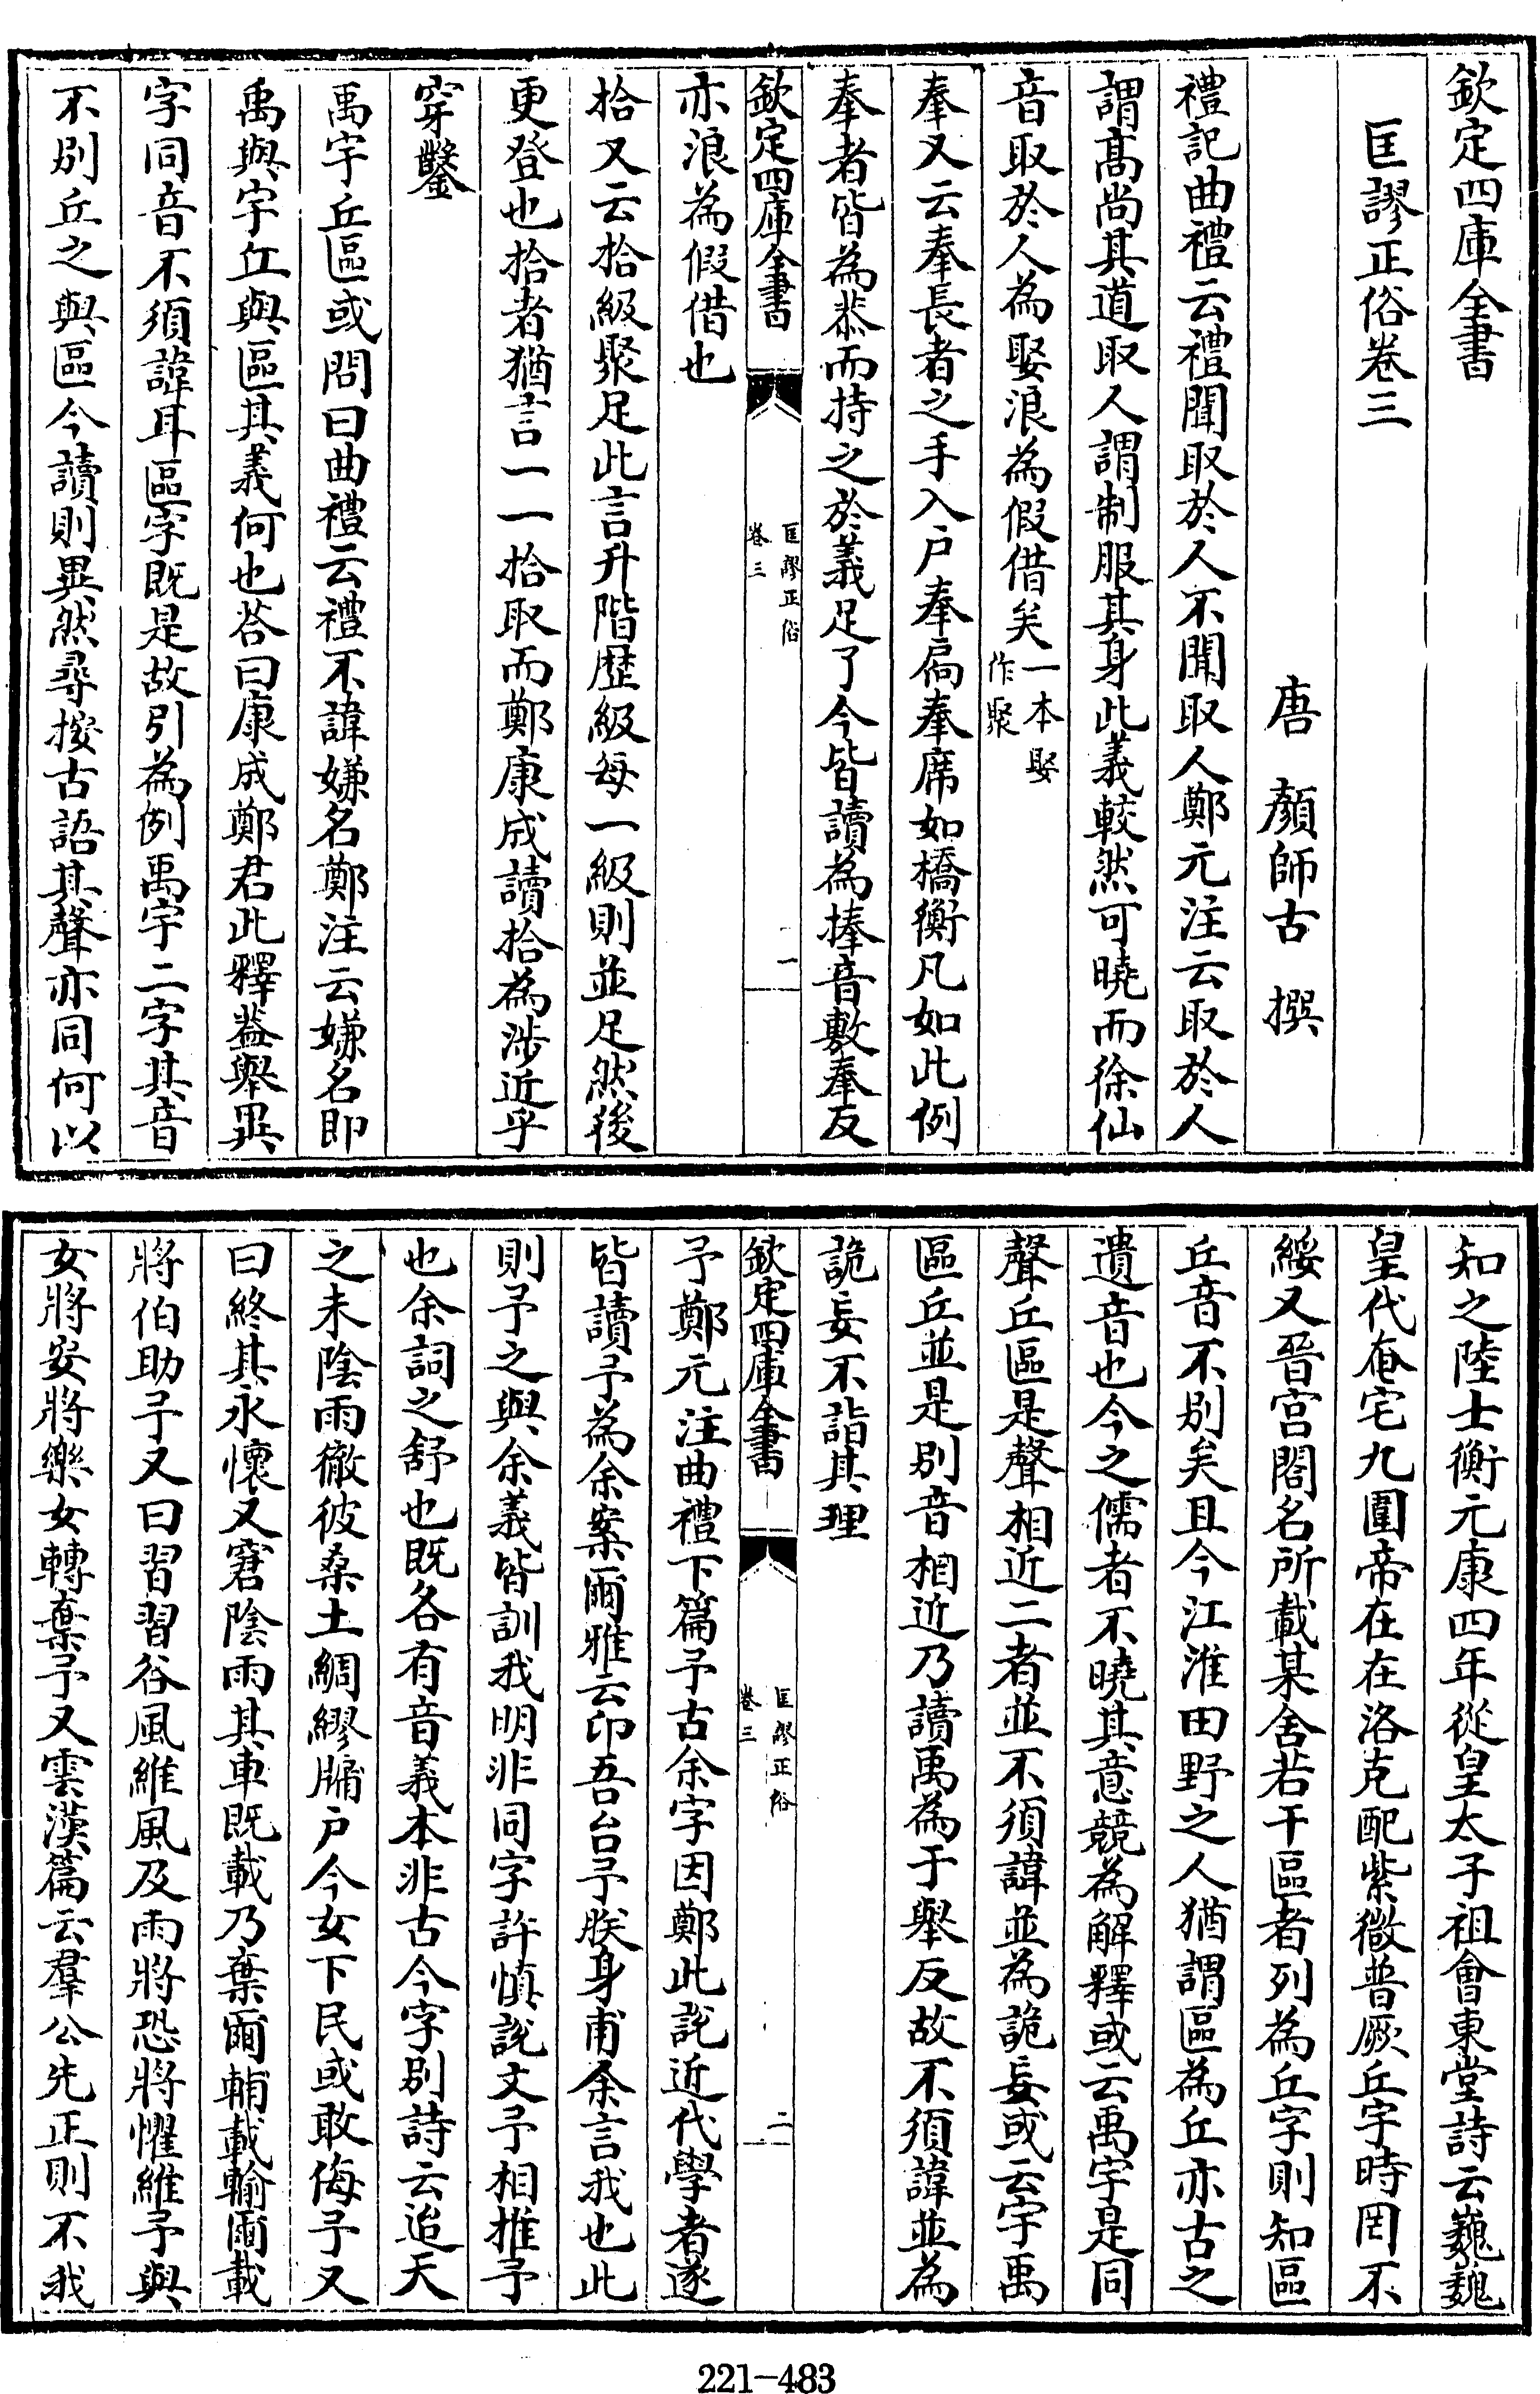 欽定四庫全書
匡謬正俗卷三
唐 顏師古 撰
禮記曲禮云禮聞取於人不聞取人鄭元注云取於人
謂髙尚其道取人謂制服其身此義較然可曉而徐仙
音取於人為娶浪為假借矣一本娶作聚
奉又云奉長者之手入户奉扃奉席如橋衡凡如此例
奉者皆為恭而持之於義足了今皆讀為捧音敷奉反
欽定四庫全書
匡謬正俗
卷三
一
亦浪為假借也
拾又云拾級聚足此言升階歴級每一級則並足然後
更登也拾者猶言一一拾取而鄭康成讀拾為涉近乎
穿鑿
禹宇丘區或問曰曲禮云禮不諱嫌名鄭注云嫌名即
禹與宇丘與區其義何也荅曰康成鄭君此釋葢舉異
字同音不須諱耳區字既是故引為例禹宇二字其音
不别丘之與區今讀則異然尋按古語其聲亦同何以
知之陸士衡元康四年從皇太子祖會東堂詩云巍巍
皇代奄宅九圍帝在在洛克配紫微普厥丘宇時罔不
綏又晉宫閣名所載某舍若干區者列為丘字則知區
丘音不别矣且今江淮田野之人猶謂區為丘亦古之
遺音也今之儒者不曉其意競為解釋或云禹宇是同
聲丘區是聲相近二者並不須諱並為詭妄或云宇禹
區丘並是别音相近乃讀禹為于舉反故不須諱並為
詭妄不詣其理
欽定四庫全書
匡謬正俗
卷三
二
予鄭元注曲禮下篇予古余字因鄭此說近代學者遂
皆讀予為余案爾雅云卬吾台予朕身甫余言我也此
則予之與余義皆訓我明非同字許慎說文予相推予
也余詞之舒也既各有音義本非古今字别詩云迨天
之未隂雨徹彼桑土綢繆牖户今女下民或敢侮予又
曰終其永懷又窘隂雨其車既載乃棄爾輔載輸爾載
將伯助予又曰習習谷風維風及雨將恐將懼維予與
女將安將樂女轉棄予又雲漢篇云羣公先正則不我
221-483